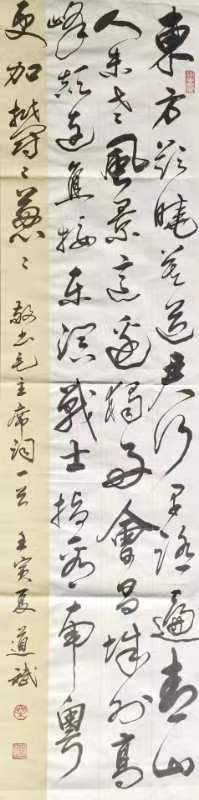 東方欲曉莫道君行早踏遍青山
人未老風景這邊獨好會昌城外高
峰顛連直接東溟戰士指看南粵
更加鬱々葱々 敬书毛主席詞一首 壬寅夏 道斌